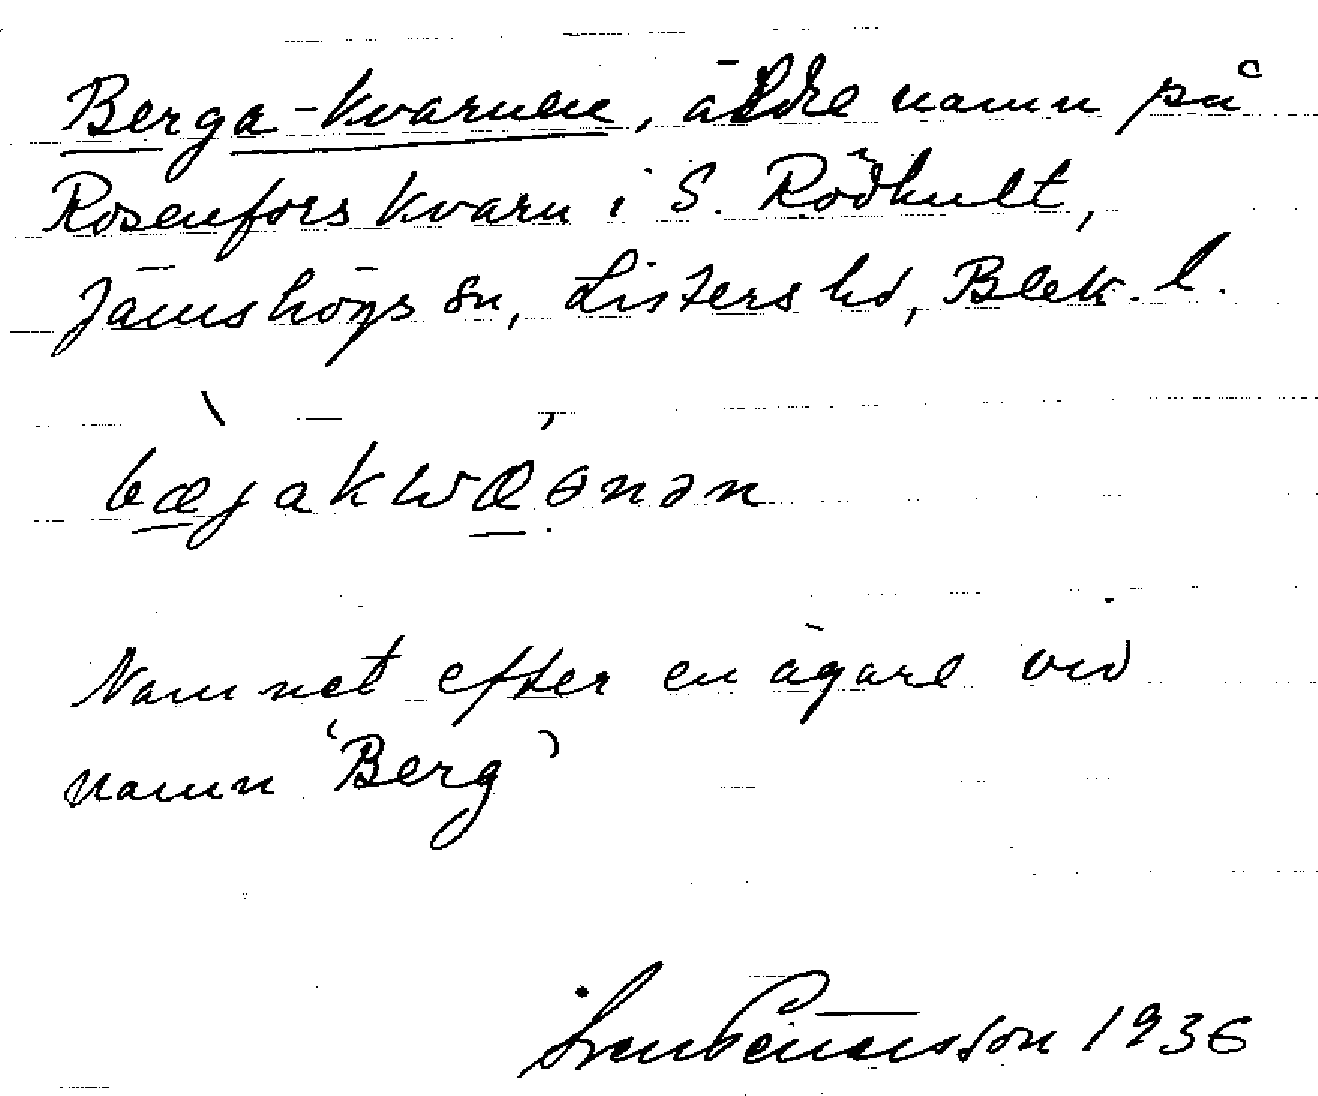 Berga-kvarnen, äldre namn på
Rosenfors kvarn i S. Rödhult,
Jämshögs sn, Listers hd, Blek. l.
bæjakwæɵnən
Namnet efter en ägare vid
namn 'Berg'
1936